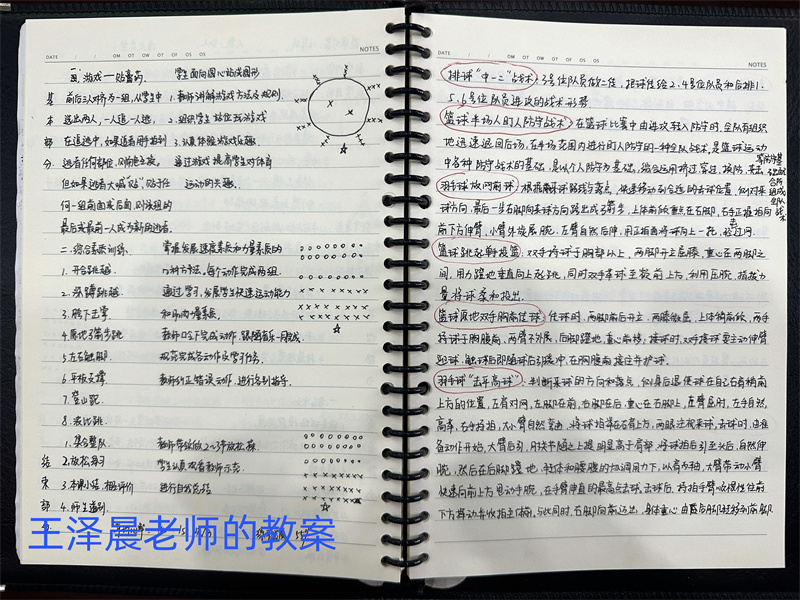 DATE
NOTES
二、
四、游戏——贴膏药
学生面向圆心站成圆形
基 前后三人对齐为一组,从学生中
1.教师讲解游戏方法及规则.
本 选出两人,一人追一人逃.
2.组织学生站位到游戏
部 在追逃中,如果追者用手拍到
3.认真体验游戏乐趣.
分 逃者任何部位,则角色交换.
通过游戏提高学生对体育
但如果逃者大喊"贴"贴于任
运动的兴趣.
何一组前面或后面,则该组的
最后或最前一人成为新的逃者.
二.综合素质训练.
掌握发展速度素质和力量素质的
1.开合跳跃
口种方法,每个动作完成两组.
通过学习,发展学生快速运动能力
3.腾下击掌
和肌肉力量素质.
4.原地弓箭步跳
教师口令下完成动作,跟随音乐一同做
5.左右触脚
规范完成各动作及学习任务.
6.平板支撑
教师纠正错误动作,进行个别指导.
7.登山跑
8.波比跳.
1.集合整队
教师带领做2~3节放松操
结 2.放松练习
学生认真观看教师示范
束 3.本课小结,相互评价
进行自我总结
部 4.师生道别.
王泽晨老师的教案
DATE
NOTES
排球"中一二"战术:3号位队员做二传,把球传给2.4号位队员和后排1.
5.6号位队员进攻的战术形势
篮球半场人盯人防守战术:在篮球比赛中由进攻转入防守时,全队有组织
地迅速退回后场,在半场范围内进行盯人防守的一种全队战术,是篮球运动
中各种防守战术的基础,是以个人防守为基础,综合运用挤过,穿过,换防,关门
等防守基础配合所组成的全队战术
羽毛球放网前球:根据来球路线与落点,快速移动到合适的击球位置,侧对来
球方向,最后一步右脚向来球方向跨出成弓箭步,上体前倾重心在右脚,右手正握拍向
前下方伸臂,小臂外旋展腕,左臂自然后伸,用正拍面将球向上一托,使球过网.
篮球跳起单手投篮:双手持球于胸部以上,两脚开立屈膝,重心在两脚之
间,用力蹬地垂直向上起跳,同时双手举球至额前上方,利用压腕,指拨力
量将球柔和投出.
篮球原地双手胸前传接球:传球时,两脚前后开立,两膝微屈,上体稍前倾,两手
持球于胸腹前,两臂不外展,后脚蹬地,重心前移;接球时,双手接球要主动伸臂
迎球,触球后即随球后引缓冲,在胸腹前接住并护球.
羽毛球"击平高球":判断来球的方向和落点,侧身后退使球在自己右肩稍前
上方的位置,左肩对网,左脚在前,右脚在后,重心在右脚上,左臂屈肘,左手自然
高举,右手持拍,大小臂自然弯曲,将球拍举在右肩上方,两眼注视来球,击球时,由准
备动作开始,大臂后引,肘关节随之上提明显高于肩部,将球拍后引至头后,自然伸
腕,然后在后脚蹬地,转体和腰腹的协调用力下,以肩为轴,大臂带动小臂
快速向前上方甩动手腕,在手臂伸直的最高点击球.击球后,持拍手臂以惯性往前
下方挥动并收拍至体前,与此同时,右脚向前迈出,身体重心由右脚移到左脚